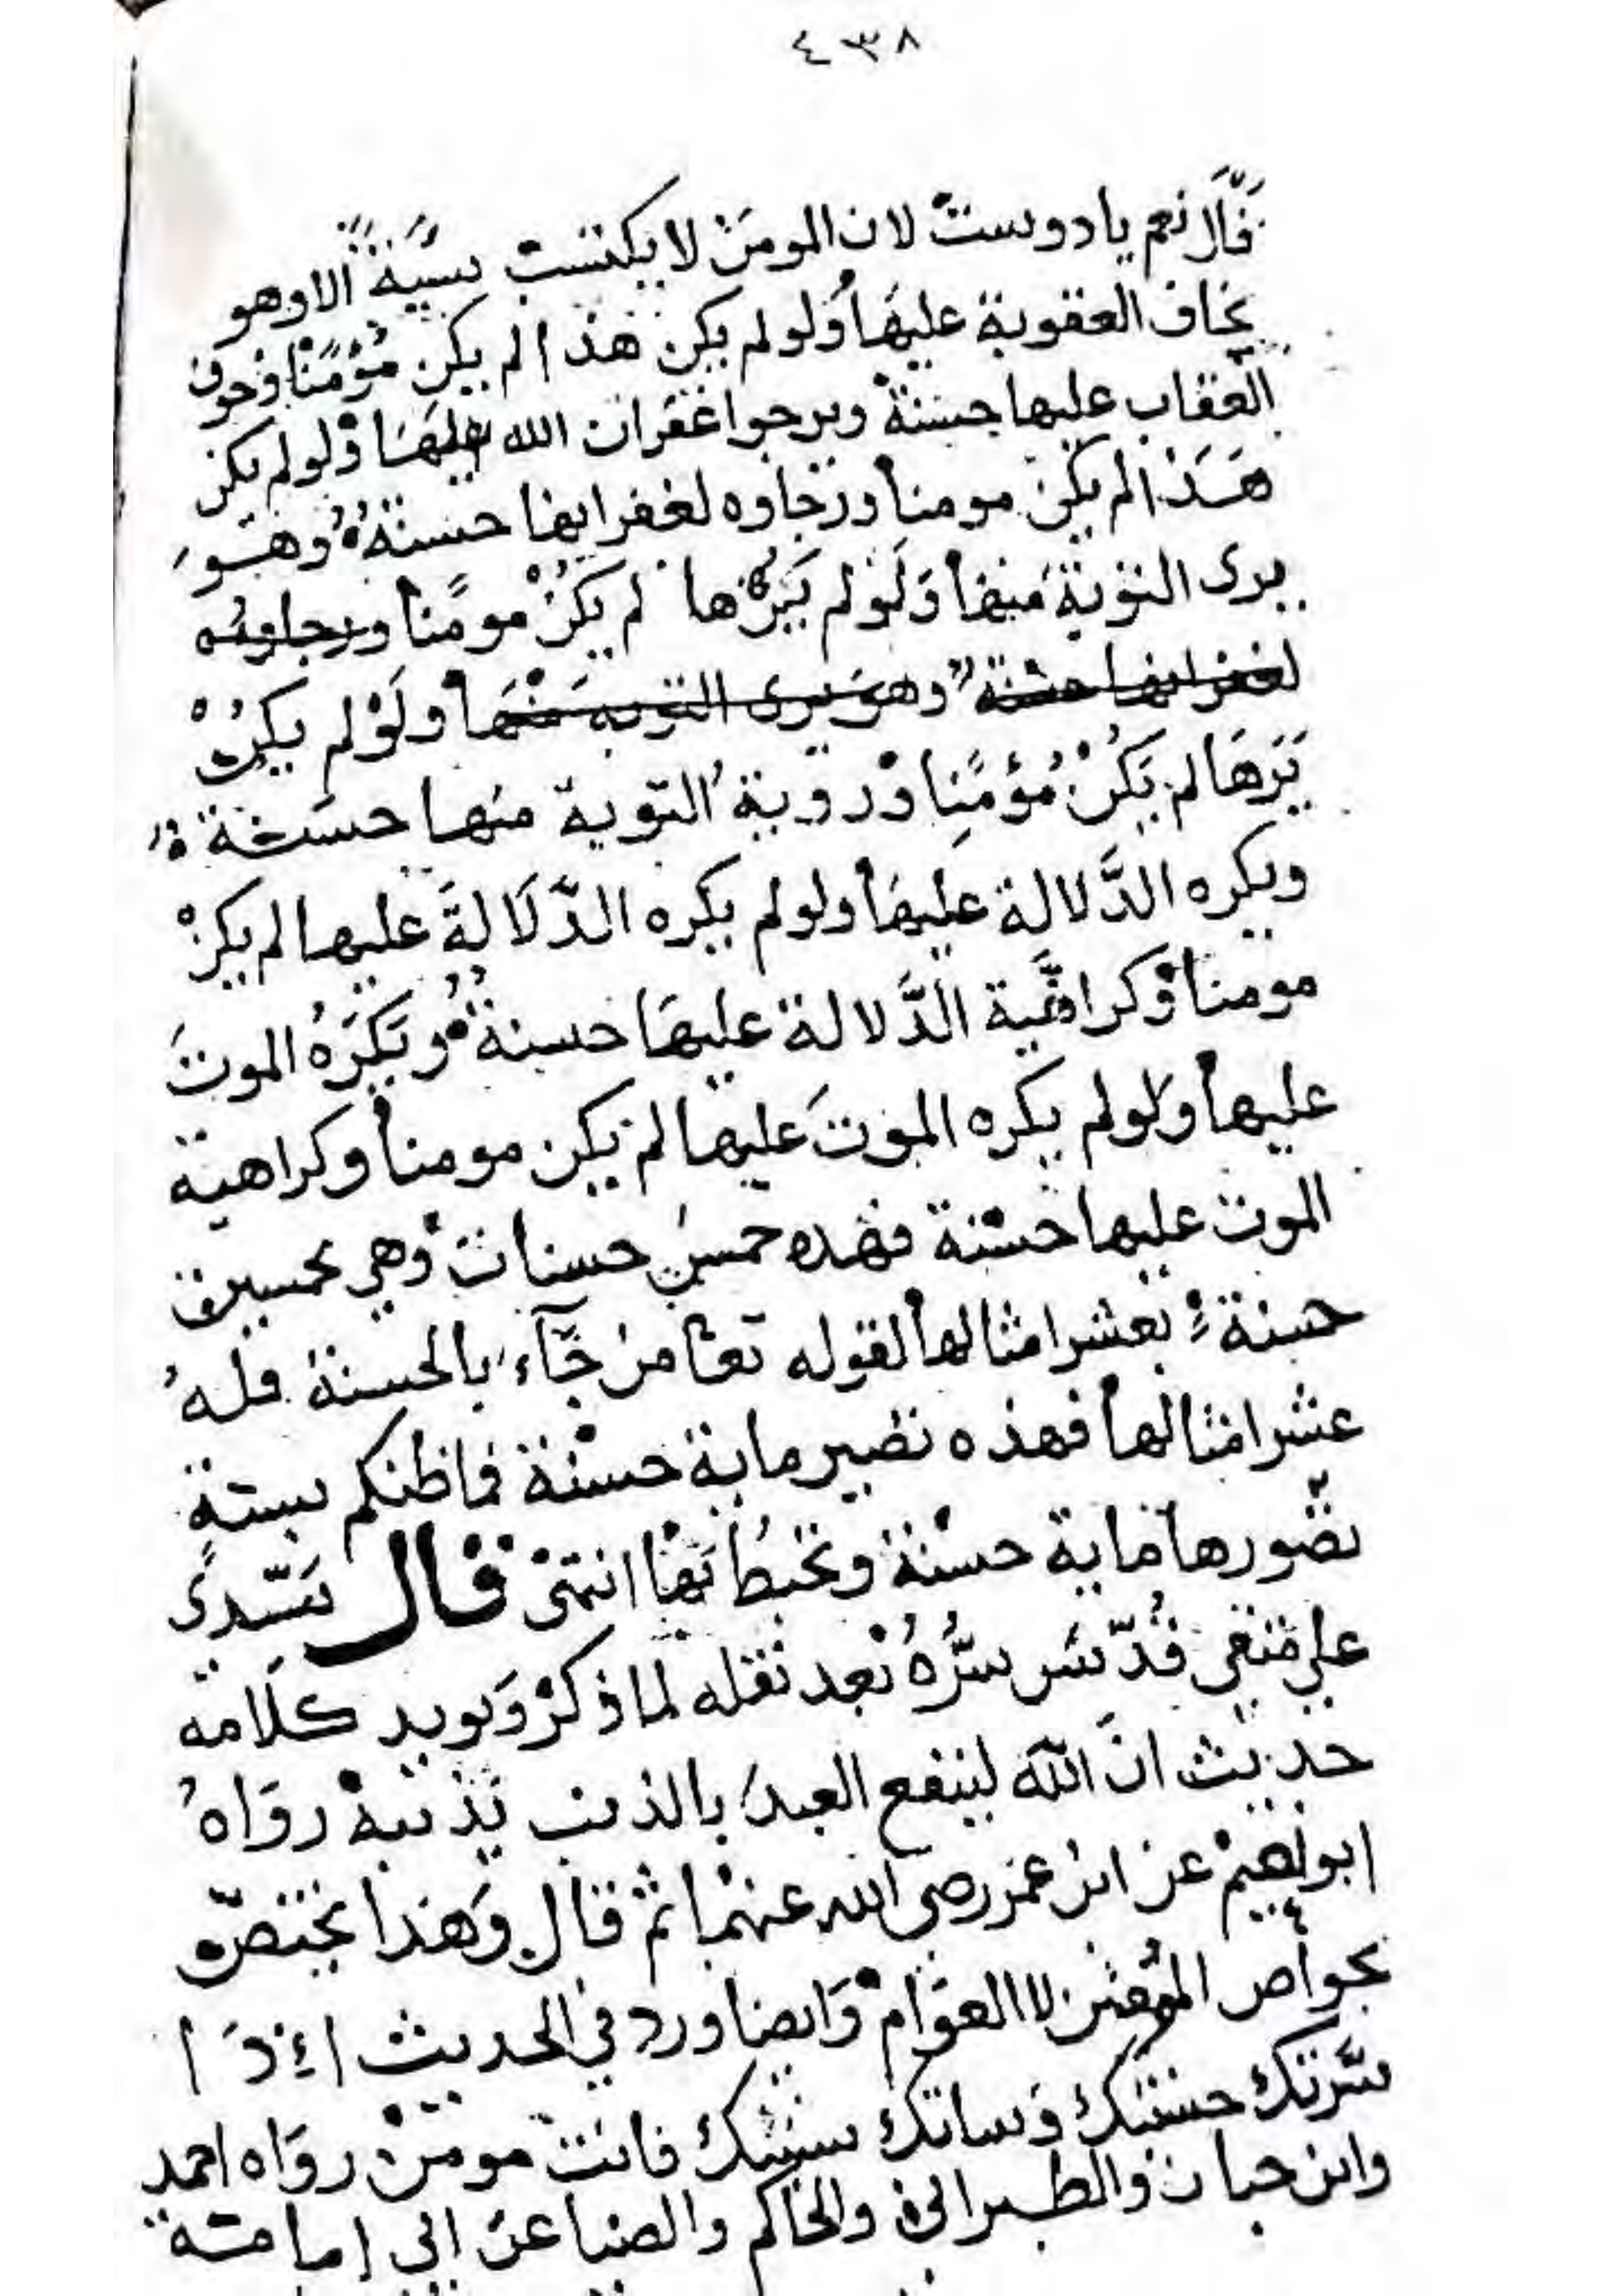 ٤٣٨
قال نعم يا دوست لان المومن لا يكتسب سيئة الا وهو
يخاف العقوبة عليها ولو لم يكن هذا لم يكن مؤمنا فخوف
العقاب عليها حسنة ويرجوا غفران الله عليها ولو لم يكن
هذا لم يكن مومنا ورجاوه لغفرانها حسنة وهو
يرى التوبة منها ولو لم يرها لم يكن مومنا ورجاوه
لغفرانها حسنة وهو يرى التوبة منها ولو لم يكن
يرها لم يكن مؤمنا وروية التوبة منها حسنة
ويكره الدلالة عليها ولو لم يكره الدلالة عليها لم يكن
مومنا وكراهية الدلالة عليها حسنة ويكره الموت
عليها ولو لم يكره الموت عليها لم يكن مومنا وكراهية
الموت عليها حسنة فهذه خمس حسنات وهي بخمسين
حسنة بعشر امثالها لقوله تعا من جآء بالحسنة فله
عشر امثالها فهذه تصير ماية حسنة فما ظنكم بسية
تصورها ماية حسنة وتحيط بها انتهى قال سيدى
علي متقي قدس سره بعد نقله لما ذكر ويويد كلامه
حديث ان الله لينفع العبد بالذنب يذنبه رواه
ابو نعيم عن ابن عمر رضى الله عنهما ثم قال وهذا يختص
بخواص لا العوام وايضا ورد في الحديث إذا
سرتك حسنتك وساتك سيئتك فانت مومن رواه احمد
وابن حبان والطبرانى والحاكم والضيا عن ابى إمامة